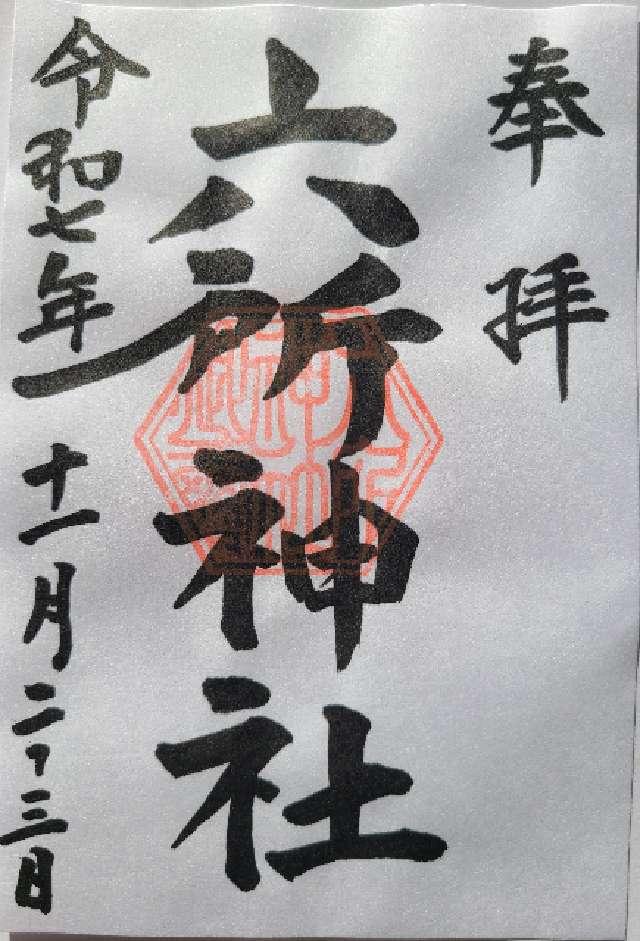 奉拝
六所神社
令和七年十一月二十三日